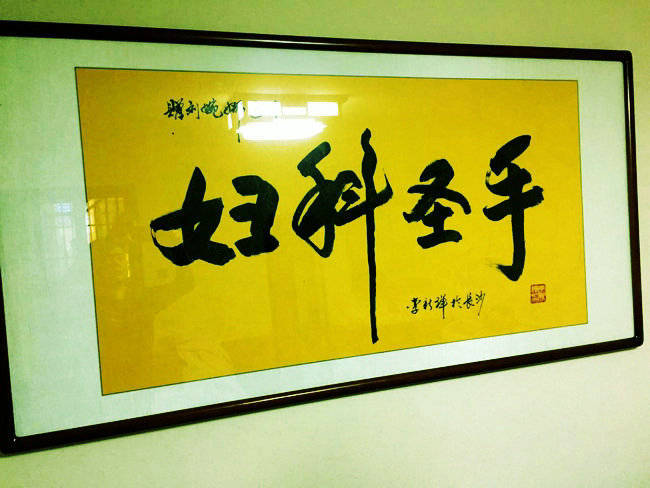 赠刘婉娜
妇科圣手
李新祥于长沙